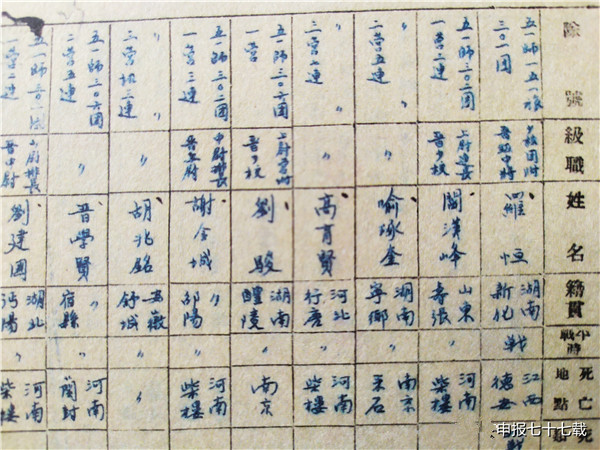 隊號
級職
姓名
籍貫
平戰時
死亡地點
死
五一師一五一旅
三〇一團
少校團附
晉級中將
羅恒
湖南
新化
戰
江西
德安
戰
五一師三〇二團
一營二連
上尉連長
晉少校
閻漢峰
山東
壽張
〃
河南
柴樓
〃
二營五連
〃
喻琢奎
湖南
寧鄉
〃
南京
采石
〃
三營七連
〃
高育賢
河北
行唐
〃
河南
柴樓
五一師三〇二團
一營
上尉營附
晉少校
劉駿
湖南
醴陵
〃
南京
五一師三〇二團
一營三連
中尉排長
晉上尉
謝全城
〃
邵陽
〃
河南
柴樓
〃
三營機三連
〃
胡兆銘
安徽
舒城
〃
〃
五一師三〇六團
二營五連
〃
晉學賢
〃
宿縣
〃
河南
蘭封
五一師三〇二團
一營二連
少尉排長
晉中尉
劉建國
湖北
沔陽
〃
河南
柴樓
申报七十七载